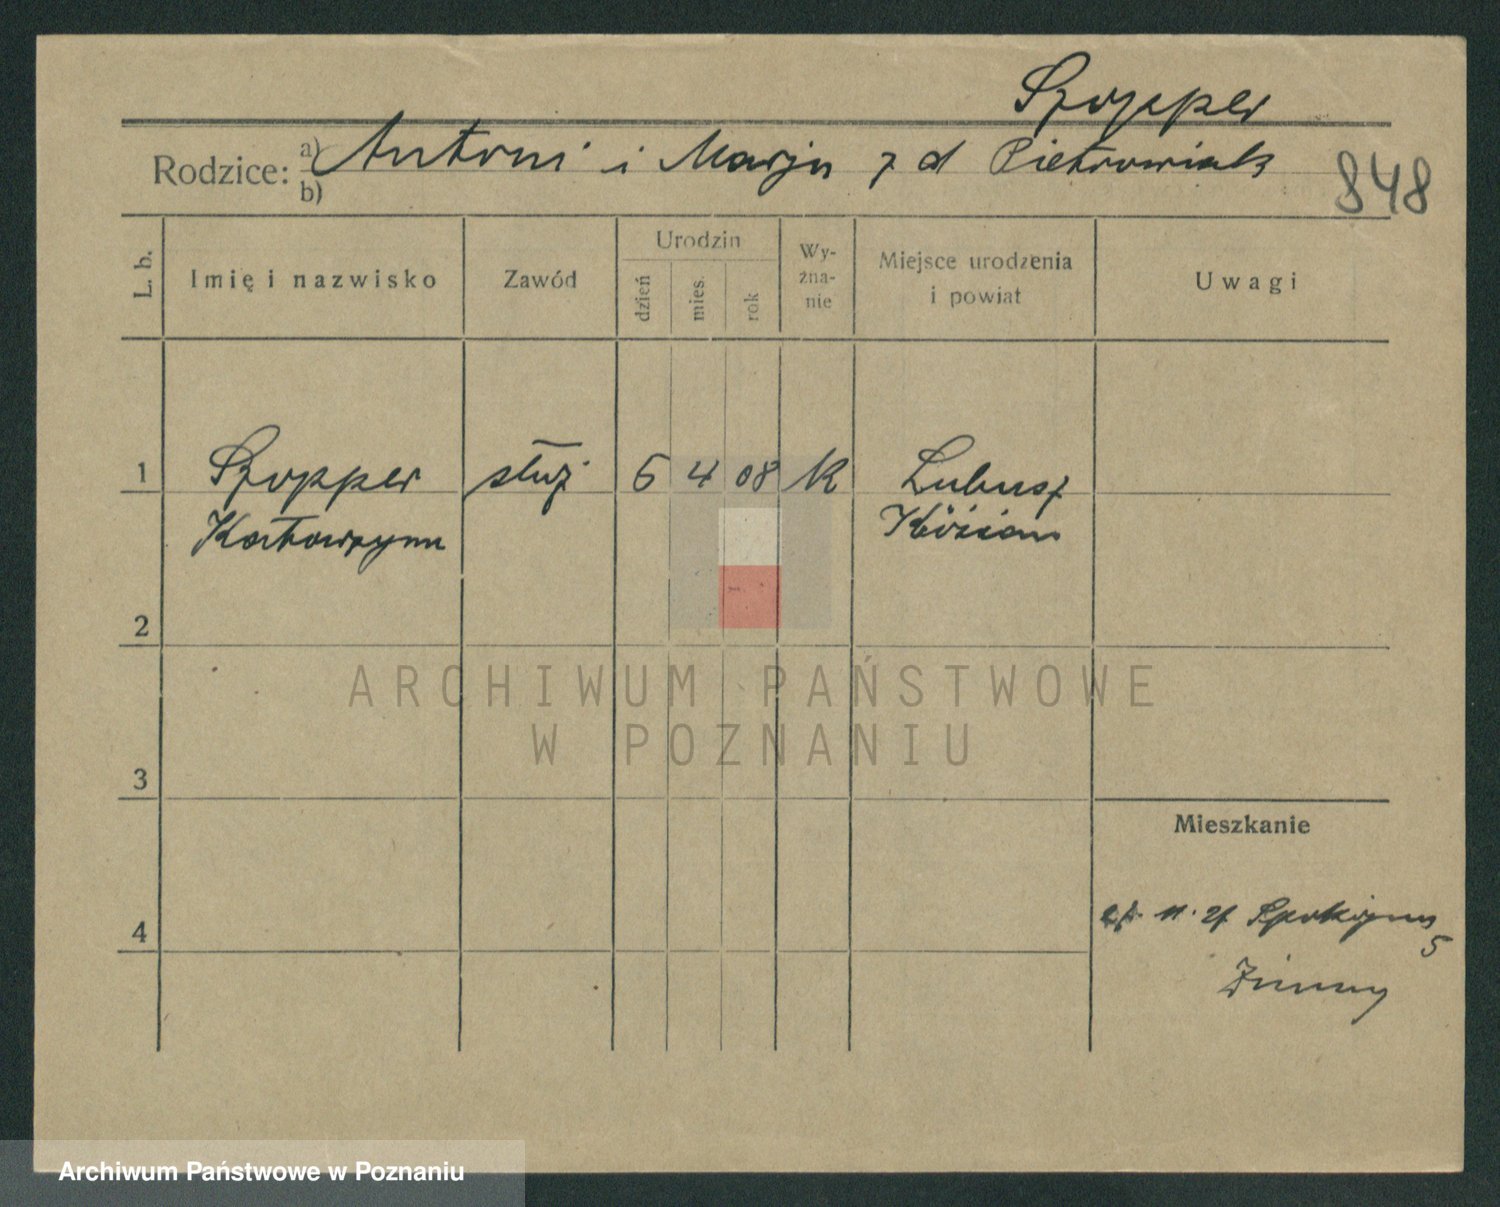 Szopper
Rodzice: a) Antoni i Marja z d Pietrowiak
b)
848
L. b.
Imię i nazwisko
Zawód
Urodzin
dzień
mies.
rok
Wy-
zna-
nie
Miejsce urodzenia
i powiat
Uwagi
1 Szopper służ 6 4 08 K Lubusz
Katarzyna Kościan
2
3
4
Mieszkanie
Spokojna
5
Zimny
ARCHIWUM PAŃSTWOWE
W POZNANIU
Archiwum Państwowe w Poznaniu